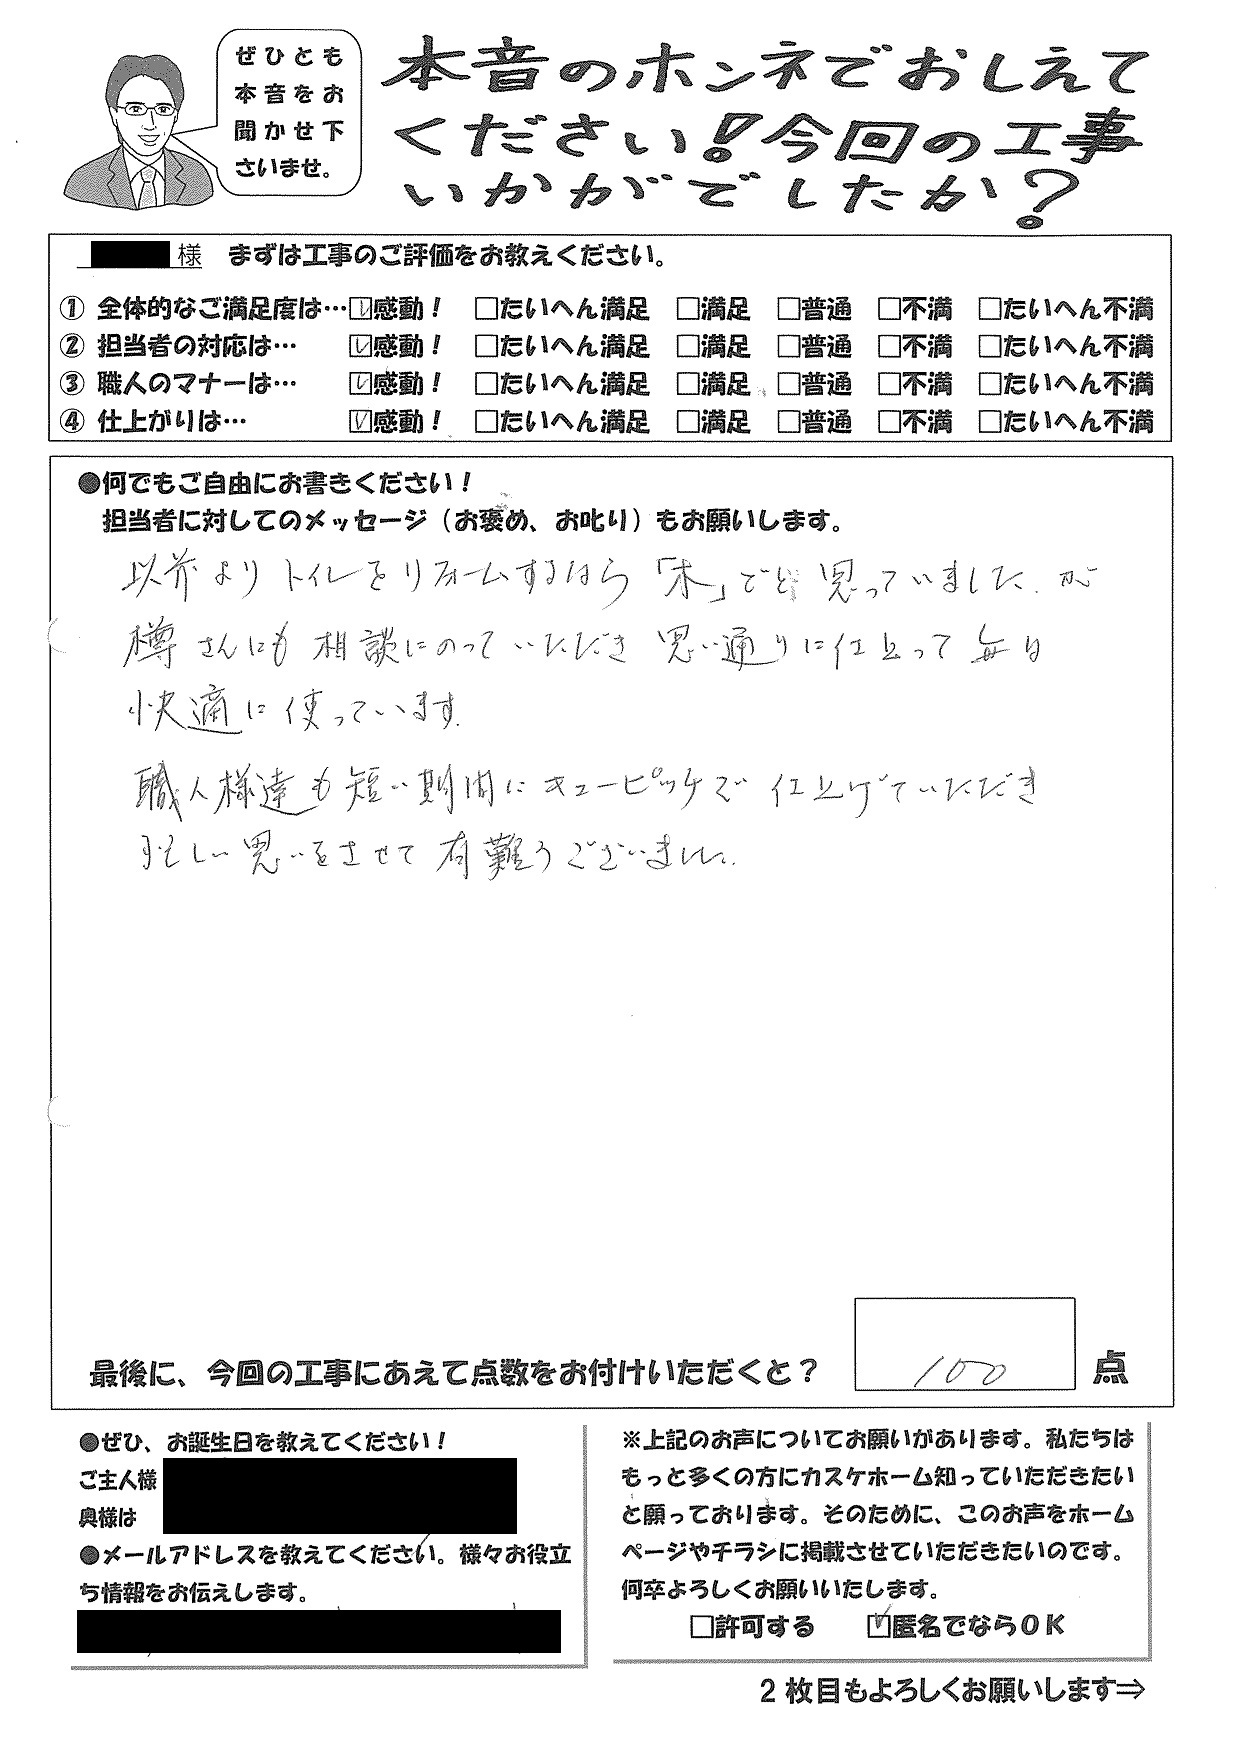 ぜひとも
本音をお
聞かせ下
さいませ。
本音のホンネでおしえて
ください！今回の工事
いかがでしたか？
様 まずは工事のご評価をお教えください。
① 全体的なご満足度は…☑感動！ □たいへん満足 □満足 □普通 □不満 □たいへん不満
② 担当者の対応は… ☑感動！ □たいへん満足 □満足 □普通 □不満 □たいへん不満
③ 職人のマナーは… ☑感動！ □たいへん満足 □満足 □普通 □不満 □たいへん不満
④ 仕上がりは… ☑感動！ □たいへん満足 □満足 □普通 □不満 □たいへん不満
●何でもご自由にお書きください！
担当者に対してのメッセージ（お褒め、お叱り）もお願いします。
以前よりトイレをリフォームするなら「木」でと思っていました.が
樽さんにも相談にのっていただき思い通りに仕上って毎日
快適に使っています.
職人様達も短い期間にキューピッチで仕上げていただき
忙しい思いをさせて有難うございました.
最後に、今回の工事にあえて点数をお付けいただくと？ 100 点
●ぜひ、お誕生日を教えてください！
ご主人様
奥様は
●メールアドレスを教えてください。様々お役立
ち情報をお伝えします。
※上記のお声についてお願いがあります。私たちは
もっと多くの方にカスケホーム知っていただきたい
と願っております。そのために、このお声をホーム
ページやチラシに掲載させていただきたいのです。
何卒よろしくお願いいたします。
□許可する ☑匿名でならＯＫ
２枚目もよろしくお願いします⇒